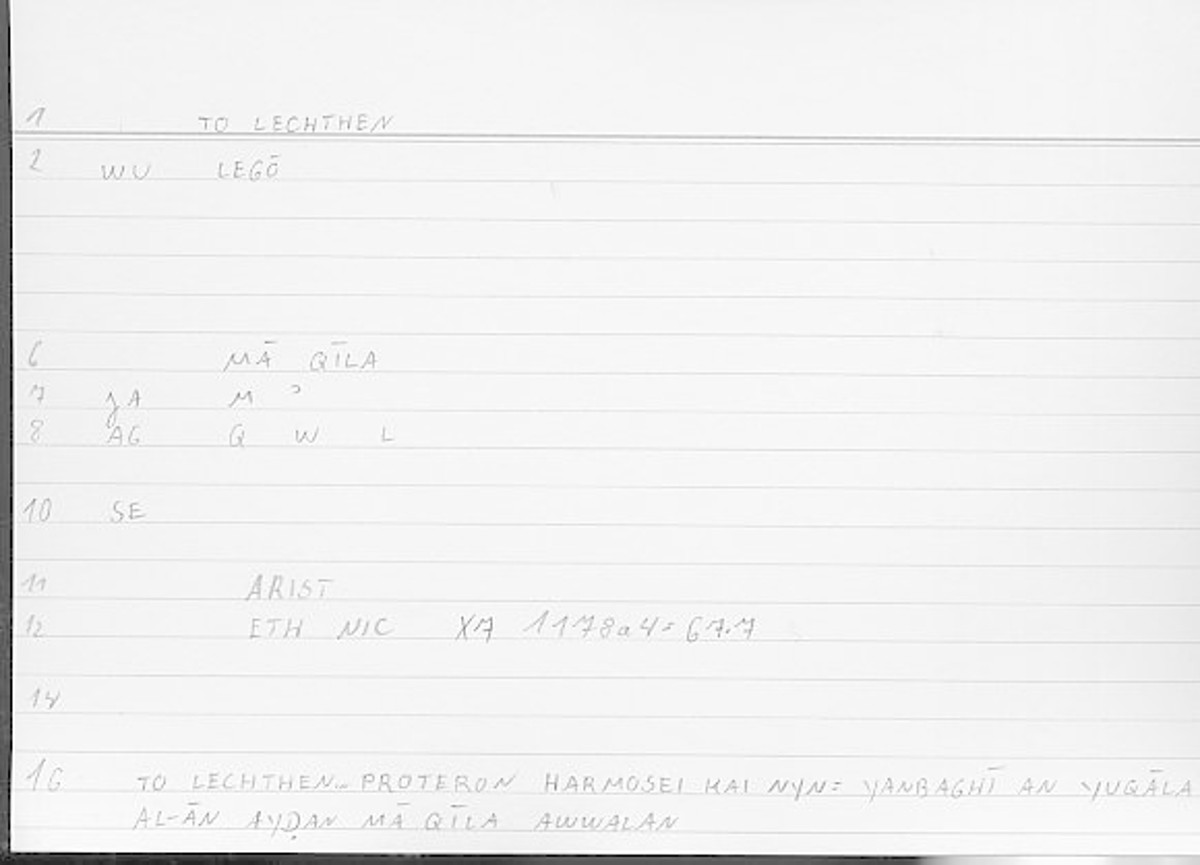 1 TO LECHTHEN
2 WU LEGŌ
6 MĀ QĪLA
7 jA M ʾ
8 AG Q W L
10 SE
11 ARIST
12 ETH NIC X7 1178a4=67.7
14
16 TO LECHTHEN.. PROTERON HARMOSEI KAI NYN= YANBAGHĪ AN YUQĀLA
AL-ĀN AYḌAN MĀ QĪLA AWWALAN